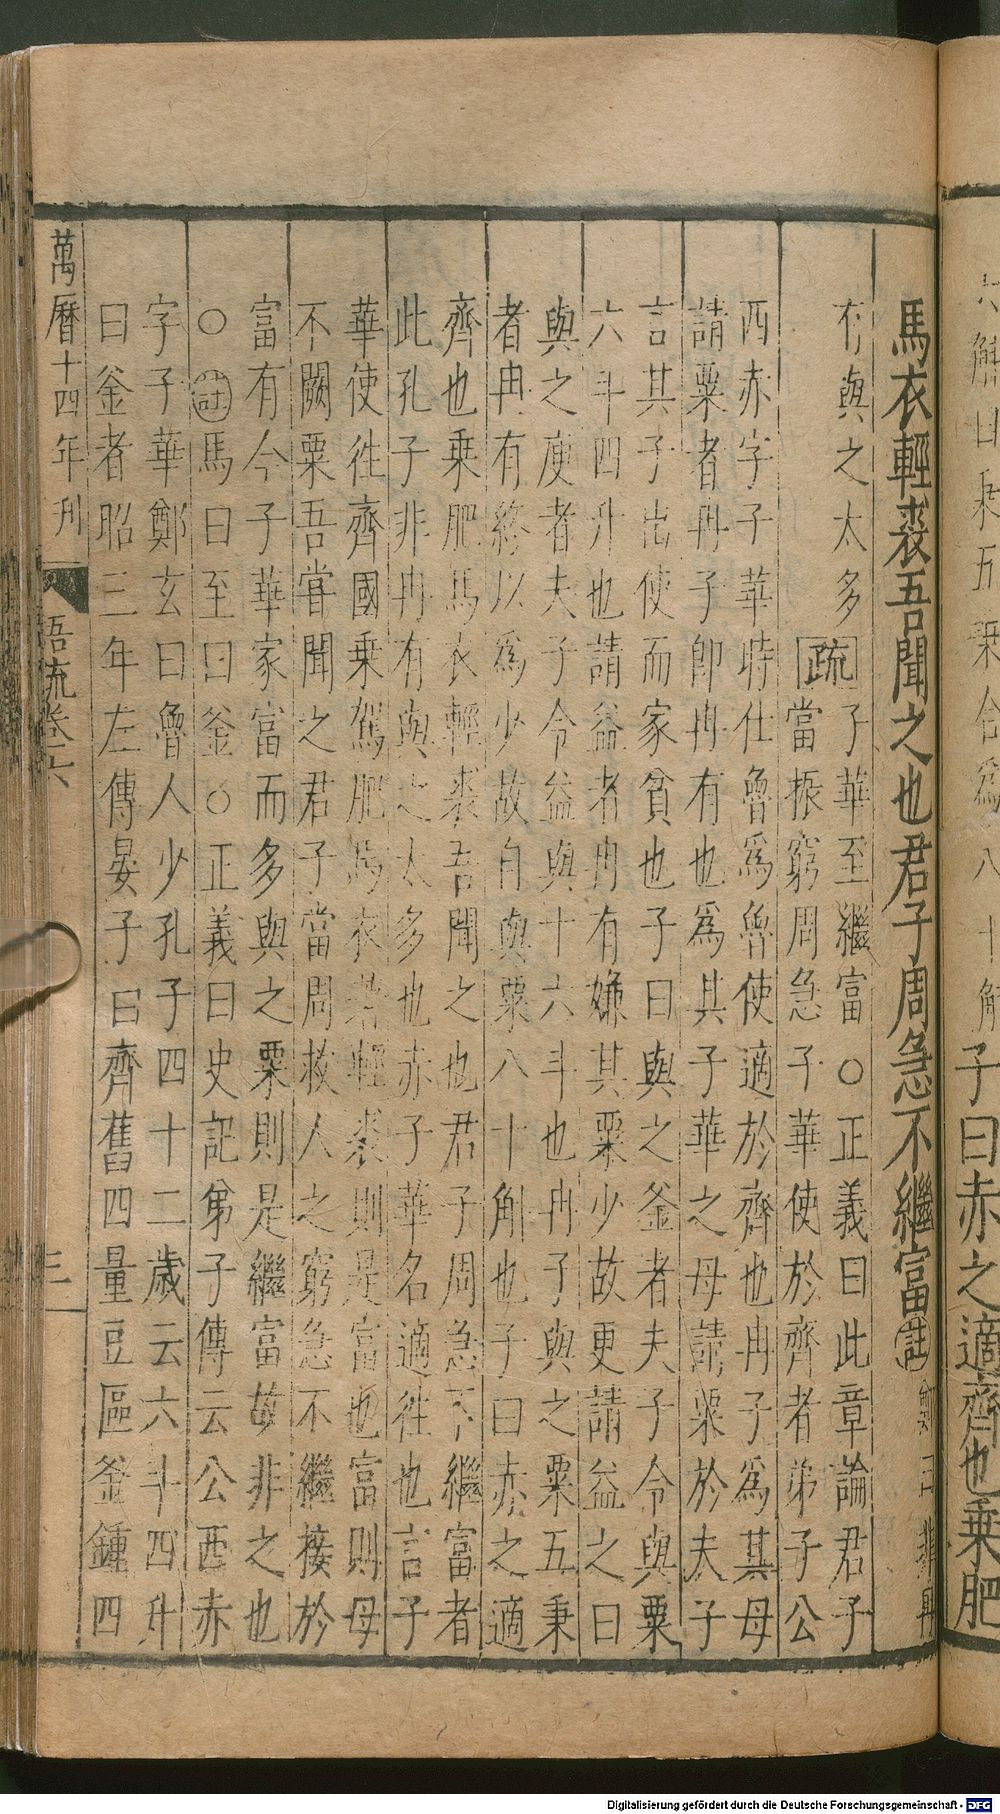 子曰赤之適齊也乗肥
馬衣輕裘吾聞之也君子周急不繼富註
冉
有與之太多
疏
子華至繼富○正義曰此章論君子
當振窮周急子華使於齊者弟子公
西赤字子華時仕魯爲魯使適於齊也冉子爲其母
請粟者冉子即冉有也爲其子華之母請粟於夫子
言其子出使而家貧也子曰與之釜者夫子令與粟
六斗四升也請益者冉有嫌其粟少故更請益之曰
與之庾者夫子令益與十六斗也冉子與之粟五秉
者冉有終以爲少故自與粟八十斛也子曰赤之適
齊也乗肥馬衣輕裘吾聞之也君子周急不繼富者
此孔子非冉有與之太多也赤子華名適往也言子
華使徃齊國乗駕肥馬衣著輕裘則是富也富則母
不闕粟吾嘗聞之君子當周救人之窮急不繼接於
富有今子華家富而多與之粟則是繼富故非之也
○註馬曰至曰釜○正義曰史記弟子傳云公西赤
字子華鄭玄曰魯人少孔子四十二歲云六斗四升
曰釜者昭三年左傳晏子曰齊舊四量豆區釜鍾四
萬曆十四年刋
語疏卷六
三
Digitalisierung gefördert durch die Deutsche Forschungsgemeinschaft - DFG